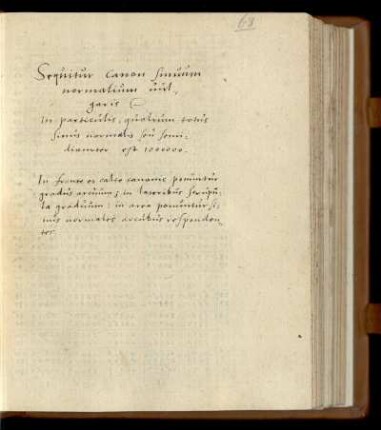 68
Sequitur canon sinuum
normalium uul,
garis
In particulis, quarum totus
sinus normalis seu semi,
diameter est 1000000.
In fronte et calce canonis ponuntur
gradus arcuum; in lateribus scrupu,
la graduum: in area ponuntur si,
nus normales arcubus responden,
tes.